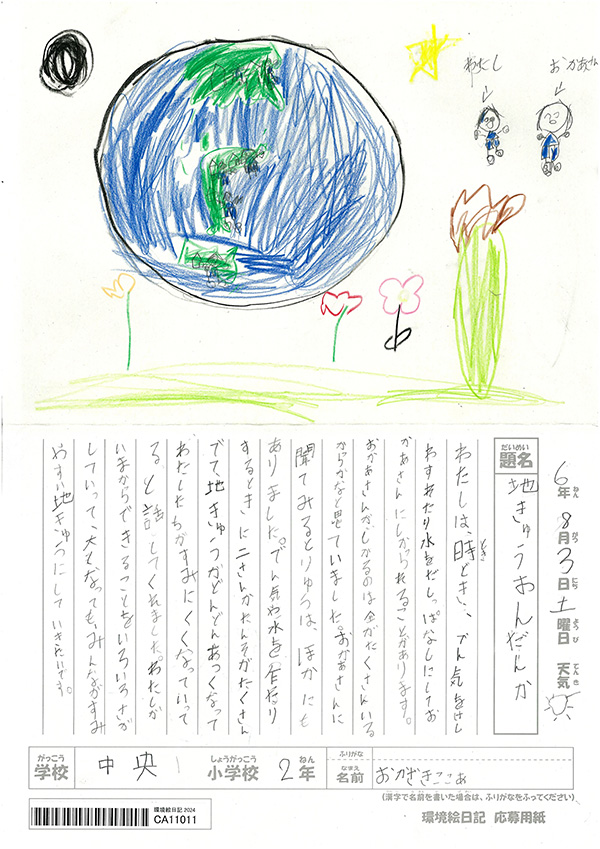 わたし
おかあさん
6年8月3日土曜日 天気
ねん がつ にち ようび てんき
だいめい
題名
地きゅうおんだんか
わたしは、時どき、でん気をけし
とき
わすれたり水をだしっぱなしにしてお
かあさんにしかられることがあります。
おかあさんがしかるのは金がたくさんいる
からかなと思ていました。おかあさんに
聞てみるとりゆうは、ほかにも
ありました。でん気や水を作たり
するときに二さんかたんそがたくさん
でて、地きゅうがどんどんあつくなって
わたしたちがすみにくくなていって
る。と話してくれました。わたしが
いまからできることをいろいろさが
していって、大人なっても、みんながすみ
やすい地きゅうにしていきたいです。
がっこう
学校 中央 小学校 2年
しょうがっこう ねん
ふりがな
なまえ
名前 おかざきここあ
(漢字で名前を書いた場合は、ふりがなをふってください)
環境絵日記 2024
CA11011
環境絵日記 応募用紙